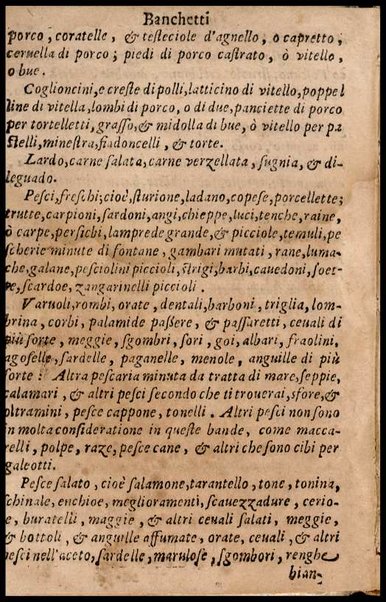 Banchetti
porco, coratelle, & testeciole d'agnello, o capretto,
ceruella di porco; piedi di porco castrato, ò vitello,
o bue.
Coglioncini, e creste di polli, latticino di vitello, poppel
line di vitella, lombi di porco, o di due, panciette di porco
per tortelletti, grasso, & midolla di bue, ò vitello per pa
stelli, minestra, fiadoncelli, & torte.
Lardo, carne salata, carne verzellata, sugnia, & di-
leguado.
Pesci, freschi; cioè, sturione, ladano, copese, porcellette;
trutte, carpioni, sardoni, angi, chieppe, luci, tenche, raine,
ò carpe, persichi, lamprede grande, & picciole, temuli, pe
scherie minute di fontane, gambari mutati, rane, luma-
che, galane, pesciolini piccioli, strigi, barbi, cauedoni, soet-
te, scardoe, zangarinelli piccioli.
Varuoli, rombi, orate, dentali, barboni, triglia, lom-
brina, corbi, palamide passere, & passaretti, ceuali di
più sorte, meggie, sgombri, sori, goi, albari, fraolini,
agoselle, sardelle, paganelle, menole, anguille di più
sorte: Altra pescaria minuta da tratta di mare, seppie,
calamari, & altri pesci secondo che ti trouerai, sfore, &
oltramini, pesce cappone, tonelli. Altri pesci non sono
in molta consideratione in queste bande, come macca-
relli, polpe, raze, pesce cane, & altri che sono cibi per
galeotti.
Pesce salato, cioè salamone, tarantello, tone, tonina,
schinale, enchioe, meglioramenti, scauezzadure, cerio-
e, buratelli, maggie, & altri ceuali salati, meggie,
& bottoli, & anguille affumate, orate, ceuali, & altri
pesci nell'aceto, sardelle, marulose, sgombori, renghe
bian-